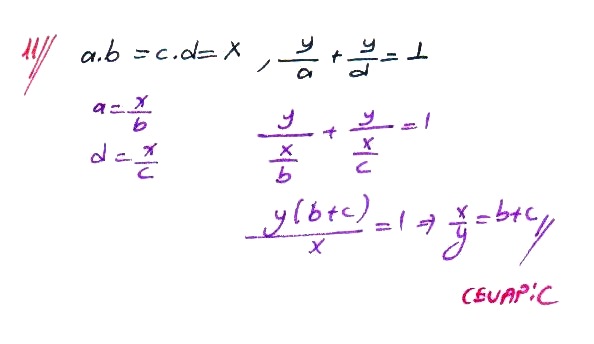 11// a.b = c.d = x , y/a + y/d = 1
a = x/b
d = x/c
y/(x/b) + y/(x/c) = 1
y(b+c)/x = 1 ⇒ x/y = b+c//
CEVAP:C